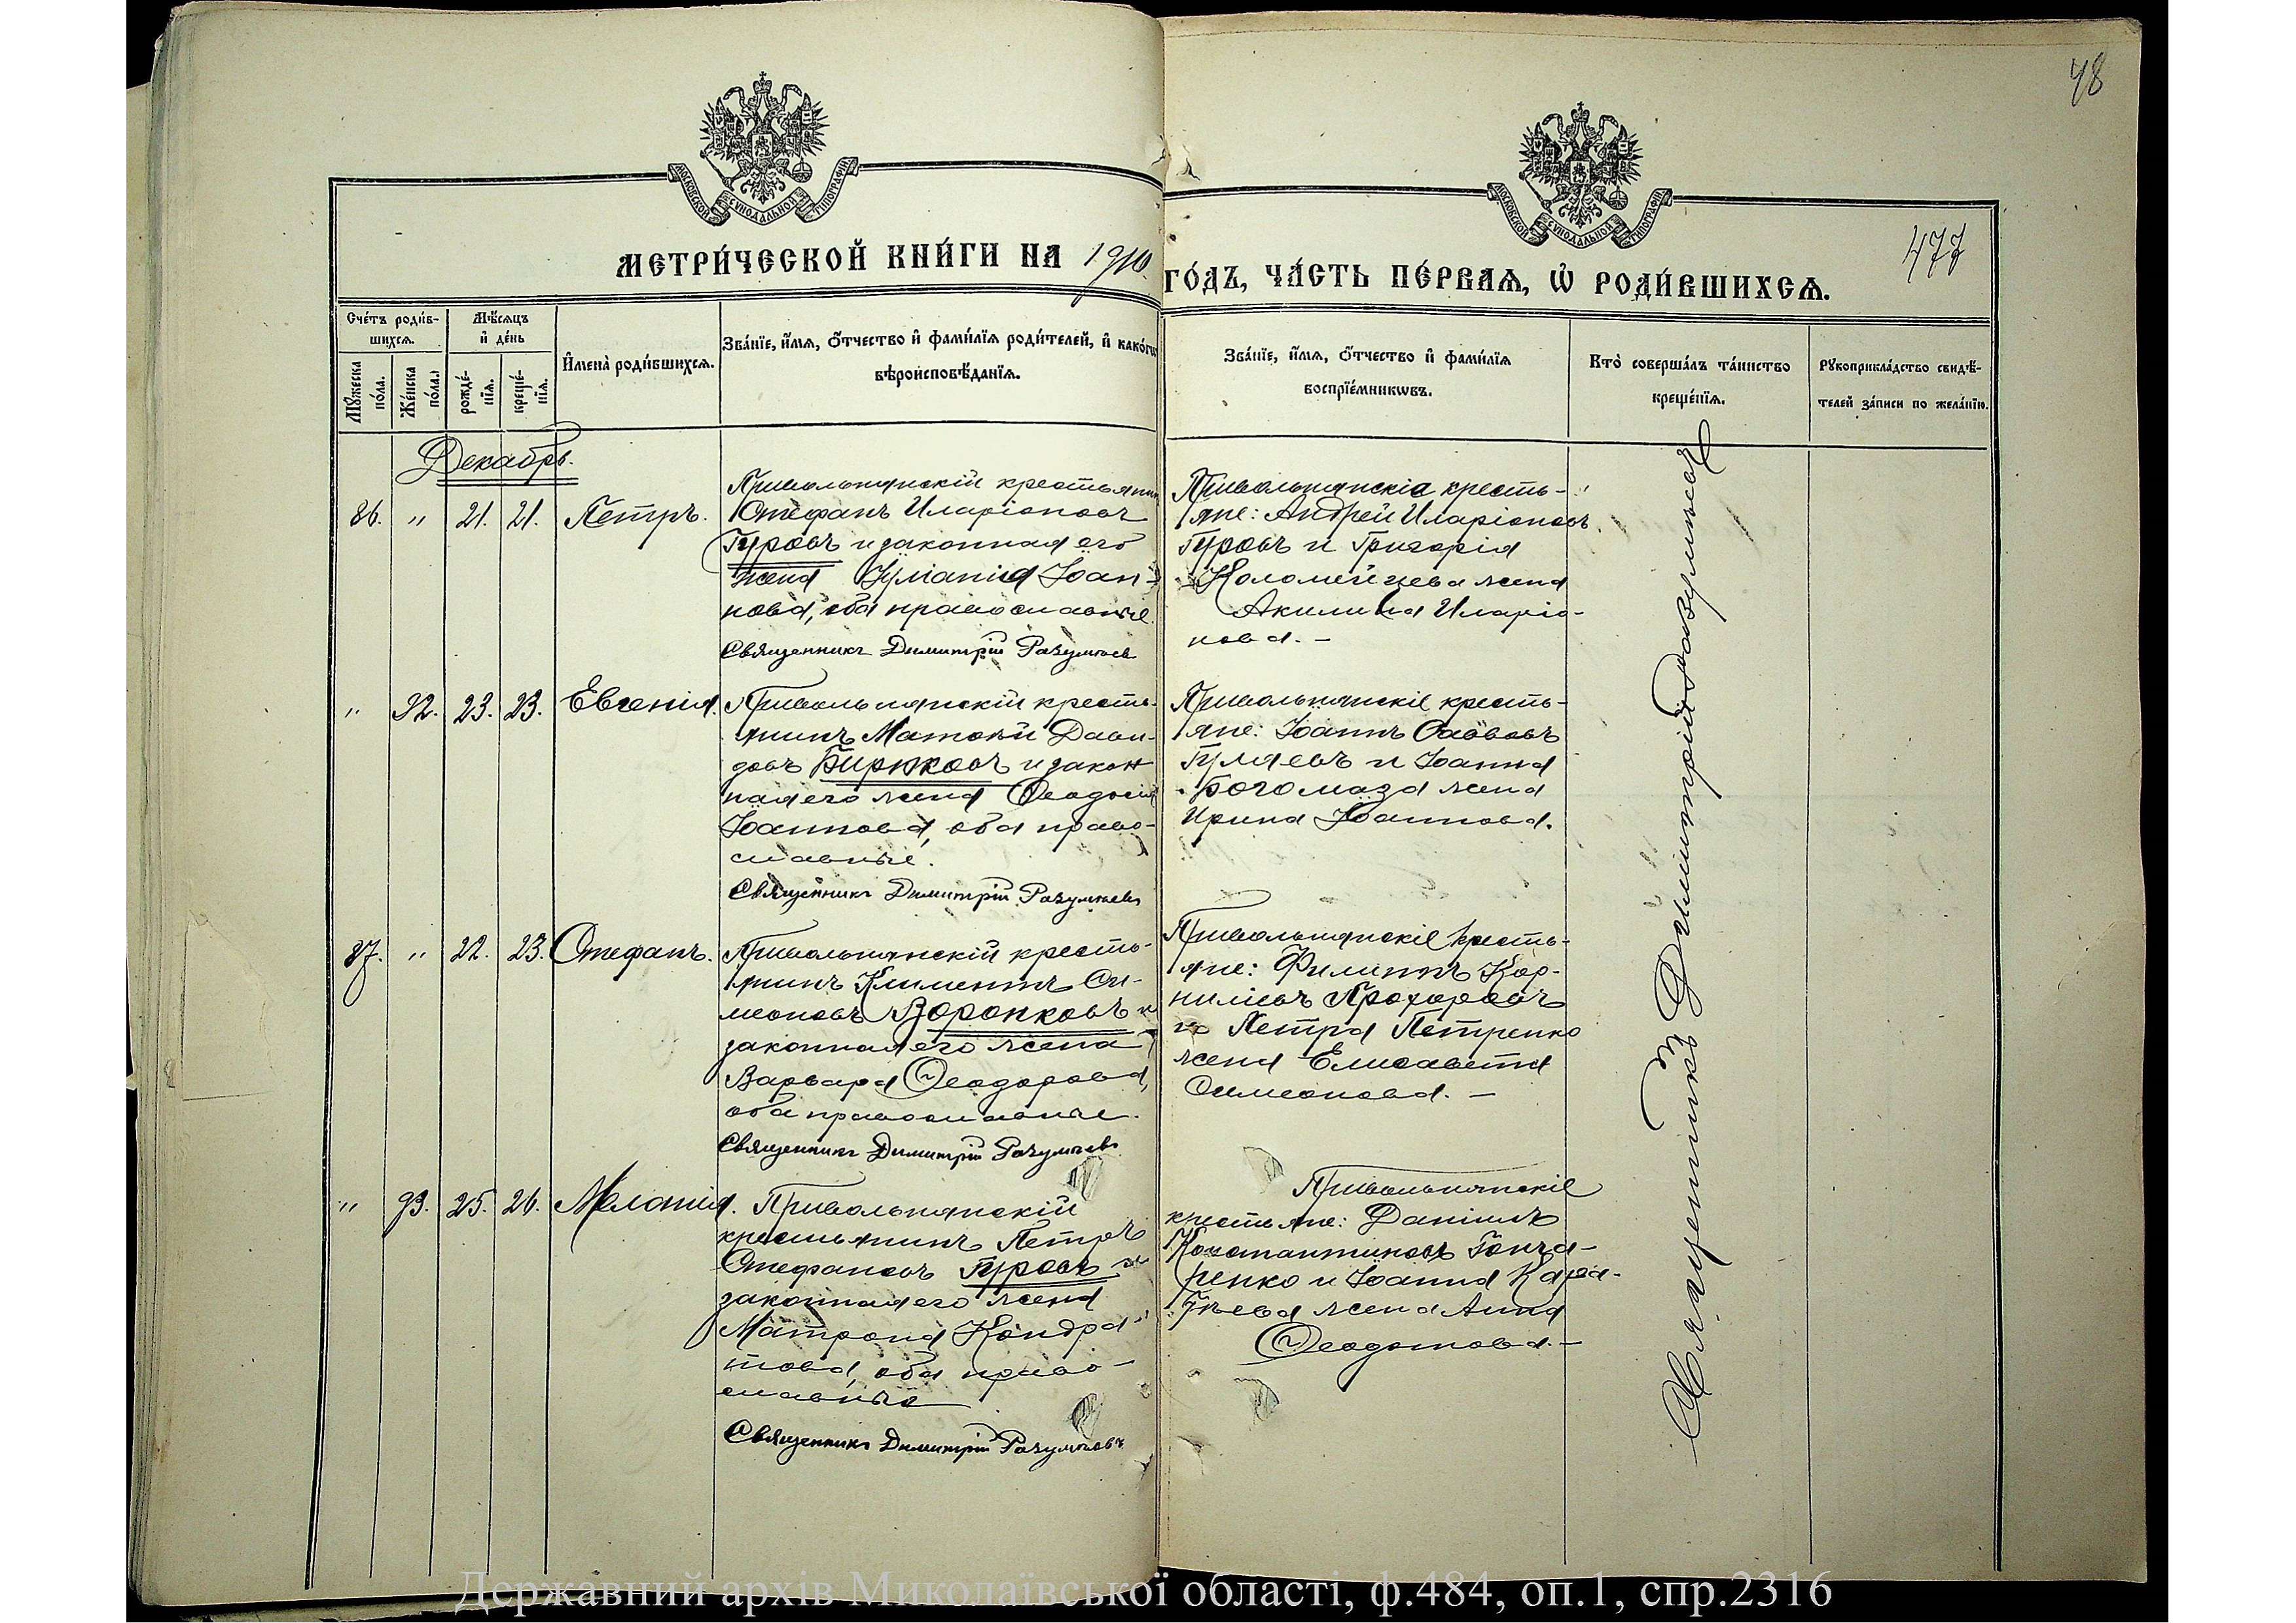 48
МОСКОВСКОЙ СѴНОДАЛЬНОЙ ТИПОГРАФІИ
МОСКОВСКОЙ СѴНОДАЛЬНОЙ ТИПОГРАФІИ
477
МЕТРИ́ЧЕСКОЙ КНИ́ГИ НА 1910
ГО́ДЪ, ЧА́СТЬ ПЕ́РВАѦ, Ѡ҆ РОДИ́ВШИХСѦ.
Сче́тъ роди́в-
шихсѧ.
Мѣ́сѧцъ
и҆ де́нь
Мꙋ́жеска
по́ла.
Же́нска
по́ла.
рожде́-
нїѧ.
креще́-
нїѧ.
И҆мена̀ роди́вшихсѧ.
Зва́нїе, и҆́мѧ, ѻ҆́тчество и҆ фами́лїѧ роди́телей, и҆ како́гѡ
вѣроисповѣ́данїѧ.
Зва́нїе, и҆́мѧ, ѻ҆́тчество и҆ фами́лїѧ
воспрїе́мникѡвъ.
Кто̀ соверша́лъ та́инство
креще́нїѧ.
Рꙋкоприкла́дство свидѣ́-
телей за́писи по жела́нїю.
Декабрь.
86. " 21. 21. Петръ.
Привольнянскій крестьянинъ
Стефанъ Иларіоновъ
Гуровъ и законная его
жена Іуліанія Іоан-
нова, оба православные.
Священникъ Димитрій Разумовъ
Привольнянскіе кресть-
яне: Андрей Иларіоновъ
Гуровъ и Григорія
Коломейцева жена
Акилина Иларіо-
нова. –
" 92. 23. 23. Евгенія.
Привольнянскій кресть-
янинъ Матѳей Дави-
довъ Бирюковъ и закон
ная его жена Ѳеодосія
Іоаннова, оба право-
славные.
Священникъ Димитрій Разумовъ
Привольнянскіе кресть-
яне: Іоаннъ Саввовъ
Гуляевъ и Іоанна
Богомаза жена
Ирина Іоаннова.
87. " 22. 23. Стефанъ.
Привольнянскій кресть-
янинъ Климентъ Си-
меоновъ Воронковъ и
законная его жена
Варвара Ѳеодорова,
оба православные.
Священникъ Димитрій Разумовъ
Привольнянскіе кресть-
яне: Филиппъ Кор-
ниліевъ Прохоровъ
и Петра Петренко
жена Елисавета
Симеонова. –
" 93. 25. 26. Меланія.
Привольнянскій
крестьянинъ Петръ
Стефановъ Гуровъ и
законная его жена
Матрона Кондра-
това, оба право-
славные
Священникъ Димитрій Разумовъ
Привольнянскіе
крестьяне: Даніилъ
Константиновъ Гонча-
ренко и Іоанна Кара-
жена Анна
Ѳеодотова. –
Священникъ Димитрій Разумовъ
Державний архів Миколаївської області, ф.484, оп.1, спр.2316